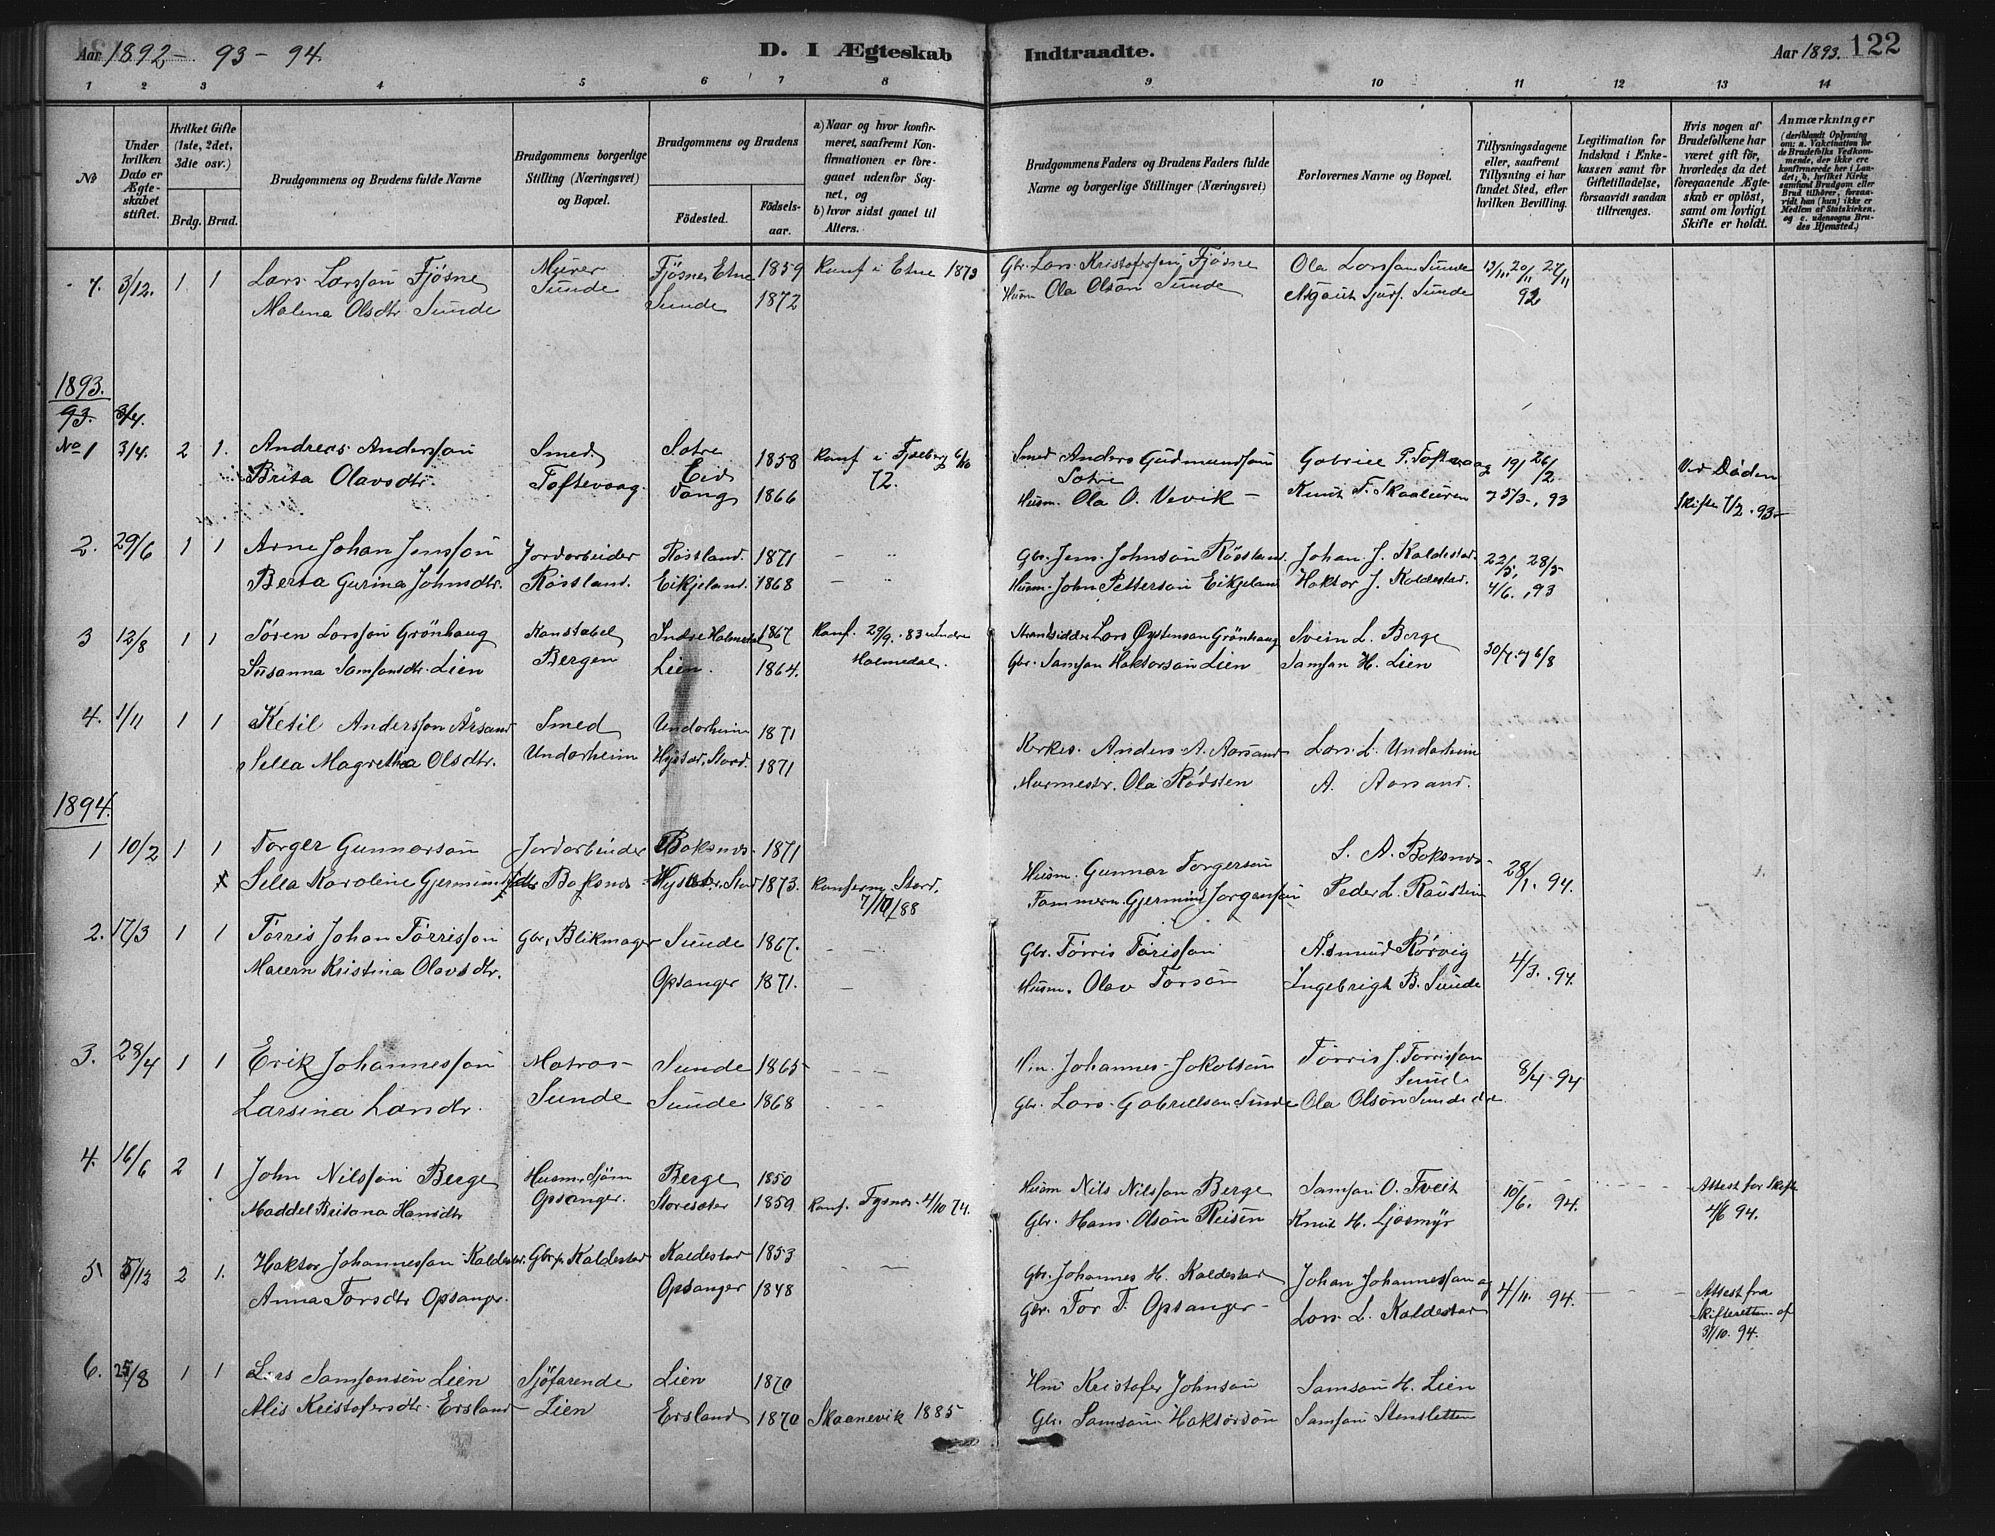 Aar 1892 - 93 - 94.
D. I Ægteskab Indtraadte.
Aar 1893. 122
1 2 3 4 5 6 7 8 9 10 11 12 13 14
No
Under hvilken Dato er Ægteskabet stiftet.
Hvilket Gifte (1ste, 2det, 3die osv.)
Brdg. Brud.
Brudgommens og Brudens fulde Navne
Brudgommens borgerlige Stilling (Næringsvei) og Bopæl.
Brudgommens og Brudens
Fødested.
Fødselsaar.
a) Naar og hvor konfirmeret, saafremt Konfirmationen er foregaaet udenfor Sognet, og
b) hvor sidst gaaet til Alters.
Brudgommens Faders og Brudens Faders fulde Navne og borgerlige Stillinger (Næringsvei)
Forlovernes Navne og Bopæl.
Tillysningsdagene eller, saafremt Tillysning ei har fundet Sted, efter hvilken Bevilling.
Legitimation for Indskud i Enkekassen samt for Giftetilladelse, forsaavidt saadan tiltrænges.
Hvis nogen af Brudefolkene har været gift før, hvorledes da det foregaaende Ægteskab er opløst, samt om lovligt Skifte er holdt.
Anmærkninger
(deriblandt Oplysning om: a. Vakcination for de Brudefolks Vedkommende, der ikke ere konfirmerede her i Landet; b. hvilket Kirkesamfund Brudgom eller Brud tilhører, forsaavidt han (hun) ikke er Medlem af Statskirken, og c. udensogns Brudes Hjemsted.)
7. 3/12. 1 1 Lars Larsson Fjösne Murer Fjösne, Etne 1859 Konf i Etne 1873 Gbr. Lars Kristoffersson Fjösne Ola Larsson Sunde 13/11 20/11 27/11
Malena Olsdtr Sunde Sunde Sunde 1872 Husm Ola Olson Sunde Asgaut Sjurs. Sunde 92
1893.
93. 3/4.
No 1 3/4. 2 1. Andreas Andersson Smed Sotre 1858 Konf i Fjelberg 6/10 Smed Anders Gudmundson Gabriel P. Toftevaag 19/ 26/2
Brita Olavsdtr. Toftevaag Eid Vaag 1866 72. Sotre
Husm. Ola O. Vevik - Knut T. Skaaluren 5/3, 93 Ved Döden
Skifte 1/2. 93.
2. 29/6 1 1 Arne Johan Jensson Jordarbeider Røssland. 1871 - " Gbr. Jens Johnson Røssland Johan J. Kaldestad. 22/5, 28/5
Berta Gurina Johnsdtr. Røssland. Eikjeland. 1868 - " Husm. John Pettersson Eikjeland Haktor J. Kaldestad. 4/6. ,93
3 12/8 1 1 Søren Larsson Grönhaug Konstabel Indre Holmedal 1867 Konf. 29/9. 83 Indre Strandsidder Lars Øystenson Grönhaug Svein L. Berge 30/7. og 6/8
Susanna Samsonsdtr. Lien Bergen Lien. 1864. Holmedal. Gbr. Samson Haktorson Lien Samson H. Lien
4. 1/11 1 1 Ketil Andersson Årsand Smed Undarheim 1871 Kirkes. Anders A. Aarsand Lars L. Undarheim
Sella Magretha Olsdtr. Undarheim Hystad, Stord. 1871 Murmestr. Ola Rødsten A. Aarsand.
1894.
1 10/2 1 1 Torger Gunnarson Jordarbeider Boksnes 1871 Husm. Gunnar Torgerson S. A. Boksnes 28/1. 94.
x Sella Karoline Gjermundsdtr Boksnes Hystad, Stord 1873. Konferm Stord, 7/10/88 Tømmerm. Gjermund Jørganson Peder L. Raustein
2. 17/3 1 1 Tørris Johan Tørrisson Gbr, Blikmager Sunde 1867. - - Gbr. Tørris Tørisson Asmund Rørvig 4/3. 94.
Maren Kristina Olavsdtr. Opsanger 1871. - Husm. Olav Torson Ingebrigt B. Sunde
3. 28/4 1 1 Erik Johannesson Matros Sunde 1865 - - - Johannes Jakobson Tørris J. Tørrisson 8/4. 94
Sunde
Larsina Larsdtr. Sunde Sunde 1868 - - Gbr. Lars Gabrielson Sunde Ola Olson Sunde
4. 16/6 2 1 John Nilsson Berge Husm. Sjöm Berge 1850 Husm Nils Nilsson Berge Samson O. Tveit 10/6. 94. Attest for Skifte
Maddel Britana Hansdtr Opsanger. 1859 Konf. Tysnes 4/10 74. Gbr. Hans Olson Reisen Knut H. Ljosmyr 4/6 94.
5 5/12 2 1. Haktor Johannesson Kaldestad Gbr. Kaldestad Kaldestad 1853 - - Gbr. Johannes H. Kaldestad Johan Johannesson og 4/11. 94. Attest fra
Anna Torsdtr Opsanger. Opsanger 1848 Gbr. Tor T. Opsanger - Lars L. Kaldestad Skifteretten af
31/10. 94.
6. 25/8 1 1 Lars Samsonsen Lien Sjöfarende Lien 1870 Hm Kristofer Johnson Samson H. Lien
Alis Kristofersdtr. Ersland Lien Ersland 1870 Skaanevik 1885 Gbr. Samson Haktorson Samson Stensletten